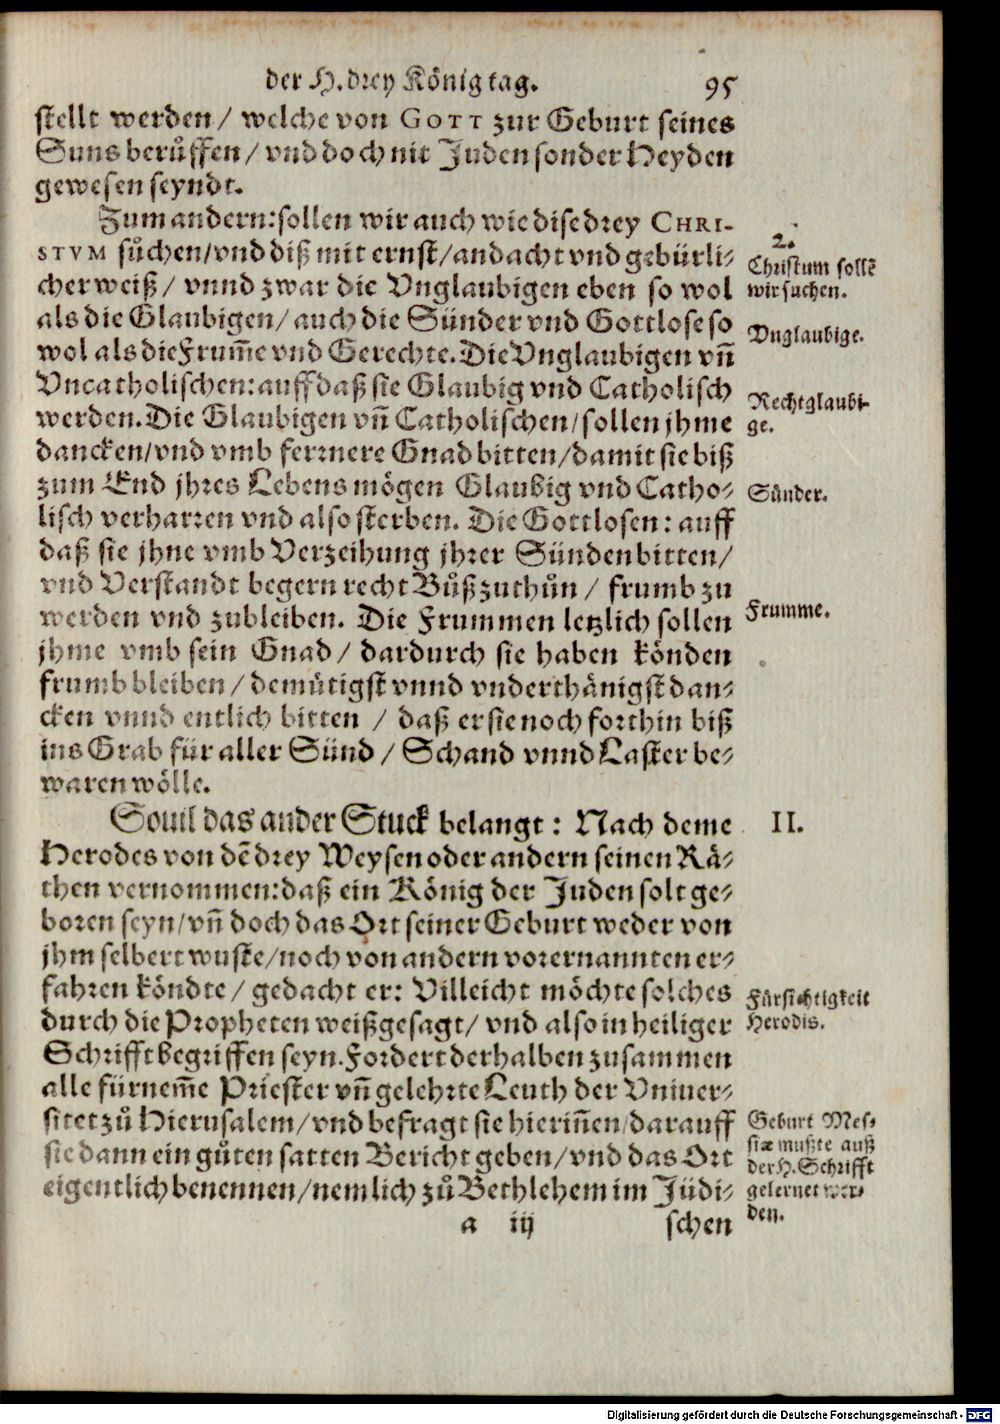 der H. drey König tag. 95
stellt werden / welche von GOTT zur Geburt seines
Suns berůffen / vnd doch nit Juden sonder Heyden
gewesen seyndt.
Zum andern: sollen wir auch wie dise drey CHRI-
STVM sůchen / vnd diß mit ernst / andacht vnd gebürli-
cher weiß / vnnd zwar die Vnglaubigen eben so wol
als die Glaubigen / auch die Sünder vnd Gottlose so
wol als die Frum̃e vnd Gerechte. Die Vnglaubigen vñ
Vncatholischen: auff daß sie Glaubig vnd Catholisch
werden. Die Glaubigen vñ Catholischen / sollen jhme
dancken / vnd vmb ferrnere Gnad bitten / damit sie biß
zum End jhres Lebens mögen Glaubig vnd Catho-
lisch verharren vnd also sterben. Die Gottlosen: auff
daß sie jhne vmb Verzeihung jhrer Sünden bitten /
vnd Verstandt begern recht Bůß zuthůn / frumb zu
werden vnd zubleiben. Die Frummen letzlich sollen
jhme vmb sein Gnad / dardurch sie haben könden
frumb bleiben / demütigst vnnd vnderthänigst dan-
cken vnnd entlich bitten / daß er sie noch forthin biß
ins Grab für aller Sünd / Schand vnnd Laster be-
waren wölle.
2.
Christum sollẽ
wir suchen.
Vnglaubige.
Rechtglaubi-
ge.
Sünder.
Frumme.
Souil das ander Stuck belangt: Nach deme
Herodes von dẽ drey Weysen oder andern seinen Rä-
then vernommen: daß ein König der Juden solt ge-
boren seyn / vñ doch das Ort seiner Geburt weder von
jhm selbert wuste / noch von andern vorernannten er-
fahren köndte / gedacht er: Villeicht möchte solches
durch die Propheten weißgesagt / vnd also in heiliger
Schrifft begriffen seyn. Fordert derhalben zusammen
alle fürnem̃e Priester vñ gelehrte Leuth der Vniuer-
sitet zů Hierusalem / vnd befragt sie hieriñen / darauff
sie dann ein gůten satten Bericht geben / vnd das Ort
eigentlich benennen / nemlich zů Bethlehem im Jüdi-
II.
Fürsichtigkeit
Herodis.
Geburt Mes-
siæ mußte auß
der H. Schrifft
gelernet wer-
den.
a iij schen
Digitalisierung gefördert durch die Deutsche Forschungsgemeinschaft - DFG